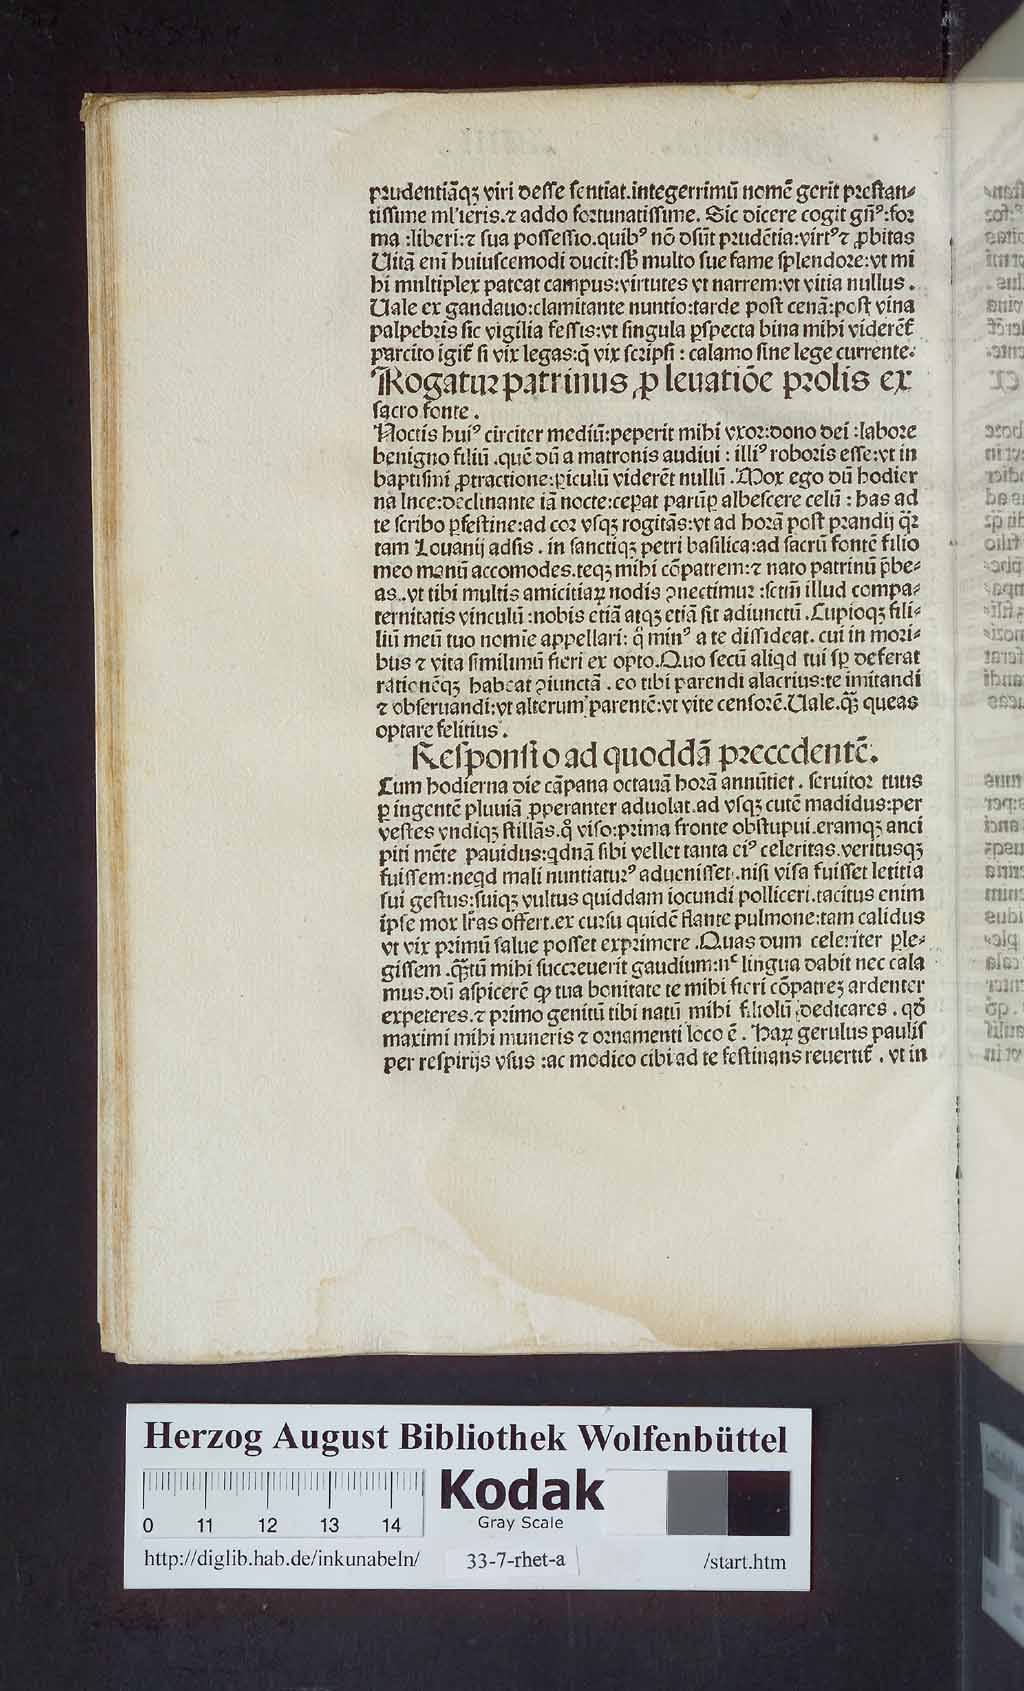 prudentiāqꝫ viri desse sentiat.integerrimū nomē gerit prestan⸗
tissime ml'ieris.⁊ addo fortunatissime. Sic dicere cogit gn̄ꝰ:for
ma :liberi:⁊ sua possessio.quibꝰ nō dsūt prudētia:virtꝰ⁊ ꝓbitas
Uitā eni huiuscemodi ducit:sb̄ multo sue fame splendore:vt mi
hi multiplex pateat campus:virtutes vt narrem:vt vitia nullus .
Uale ex gandauo:clamitante nuntio:tarde post cenā:post vina
palpebris sic vigilia fessis:vt singula ꝑspecta bina mihi viderēt̄
parcito igit̄ si vix legas:q̄ vix scripsi : calamo sine lege currente.
Rogatur patrinus ꝓ leuatiōe prolis ex
sacro fonte .
Noctis huiꝰ circiter mediū:peperit mihi vxor:dono dei :labore
benigno filiū .quē dū a matronis audiui : illiꝰ roboris esse:vt in
baptismi ꝓtractione:ꝑiculū viderēt nullū .Mox ego dū hodier
na lnce:declinante iā nocte:ceꝑat parūꝑ albescere celū : has ad
te scribo ꝑfestine:ad cor vsqꝫ rogitās:vt ad horā post prandij q̄r
tam Louanij adsis . in sanctiqꝫ petri basilica:ad sacrū fontē filio
meo manū accomodes.teqꝫ mihi cōpatrem:⁊ nato patrinū p̄be⸗
as..vt tibi multis amicitiaꝝ nodis ꝯnectimur :sctm̄ illud compa⸗
ternitatis vinculū :nobis etiā atqꝫ etiā sit adiunctū .Cupioqꝫ fili⸗
liū meū tuo nomīe appellari: q̊ minꝰ a te dissideat. cui in mori⸗
bus ⁊ vita similimū fieri ex opto.Quo secū aliqd tui sp̄ deferat
rationēqꝫ habeat ꝯiunctā . eo tibi parendi alacrius:te imitandi
⁊ obseruandi:vt alterum parentē:vt vite censorē.Uale.q̄ꝫ queas
optare felitius .
Responsio ad quoddā precedentē.
Cum hodierna die cāpana octauā horā annūtiet . seruitor tuus
ꝑ ingentē pluuiā ꝓperanter aduolat.ad vsqꝫ cutē madidus:per
vestes vndiqꝫ stillās.q̊ viso:prima fronte obstupui.eramqꝫ anci
piti mēte pauidus:qdnā sibi vellet tanta eiꝰ celeritas.veritusqꝫ
fuissem:neqd mali nuntiaturꝰ aduenisset.nisi visa fuisset letitia
sui gestus:suiqꝫ vultus quiddam iocundi polliceri.tacitus enim
ipse mox lr̄as offert.ex cursu quidē flante pulmone:tam calidus
vt vix primū salue posset exprimere .Quas dum celeriter ꝑle⸗
gissem .q̄ꝫtū mihi succreuerit gaudium:nc̄ lingua dabit nec cala
mus.dū aspicerē ꝙ tua bonitate te mihi fieri cōpatreꝫ ardenter
expeteres.⁊ primo genitū tibi natū mihi filiolū dedicares . qd̄
maximi mihi muneris ⁊ ornamenti loco ē . Haꝝ gerulus paulis
per respirijs vsus :ac modico cibi ad te festinans reuertit̄ . vt in
Herzog August Bibliothek Wolfenbüttel
Kodak
Gray Scale
0 11 12 13 14
http://diglib.hab.de/inkunabeln/ 33-7-rhet-a /start.htm